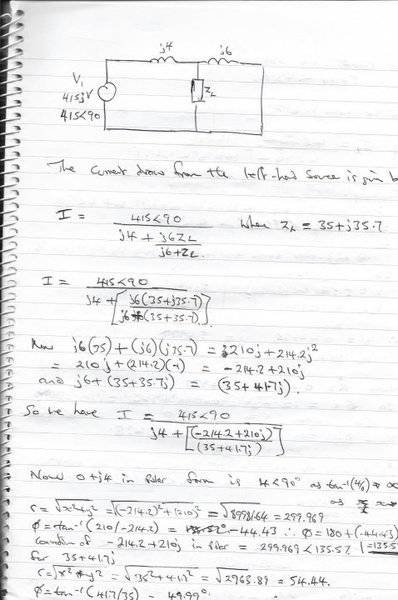 j4 j6
V1
415jV
415<90
ZL
The current drawn from the left-hand source is given b
I = 415<90 where ZL = 35+j35.7
j4 + j6ZL
j6+ZL
I = 415<90
j4 + [j6(35+j35.7)
j6+(35+35.7)]
Now j6(35)+(j6)(j35.7) = j210j+214.2j²
= 210j+(214.2)(-1) = -214.2+210j
and j6+(35+35.7j) = (35+41.7j).
So we have I = 415<90
j4 + [(-214.2+210j)
(35+41.7j)]
Now 0+j4 in polar form is 4<90° as tan⁻¹(4/0) = ∞
r = √x²+y² = √(-214.2)²+(210)² = √89981.64 = 299.969
φ = tan⁻¹(210/-214.2) = -44.43 ∴ φ = 180+(-44.43)
= 135.5
of -214.2+210j in polar = 299.969 <135.57
for 35+41.7j
r = √x²+y² = √35²+41.7² = √2963.89 = 54.44.
φ = tan⁻¹(41.7/35) = 49.99°.